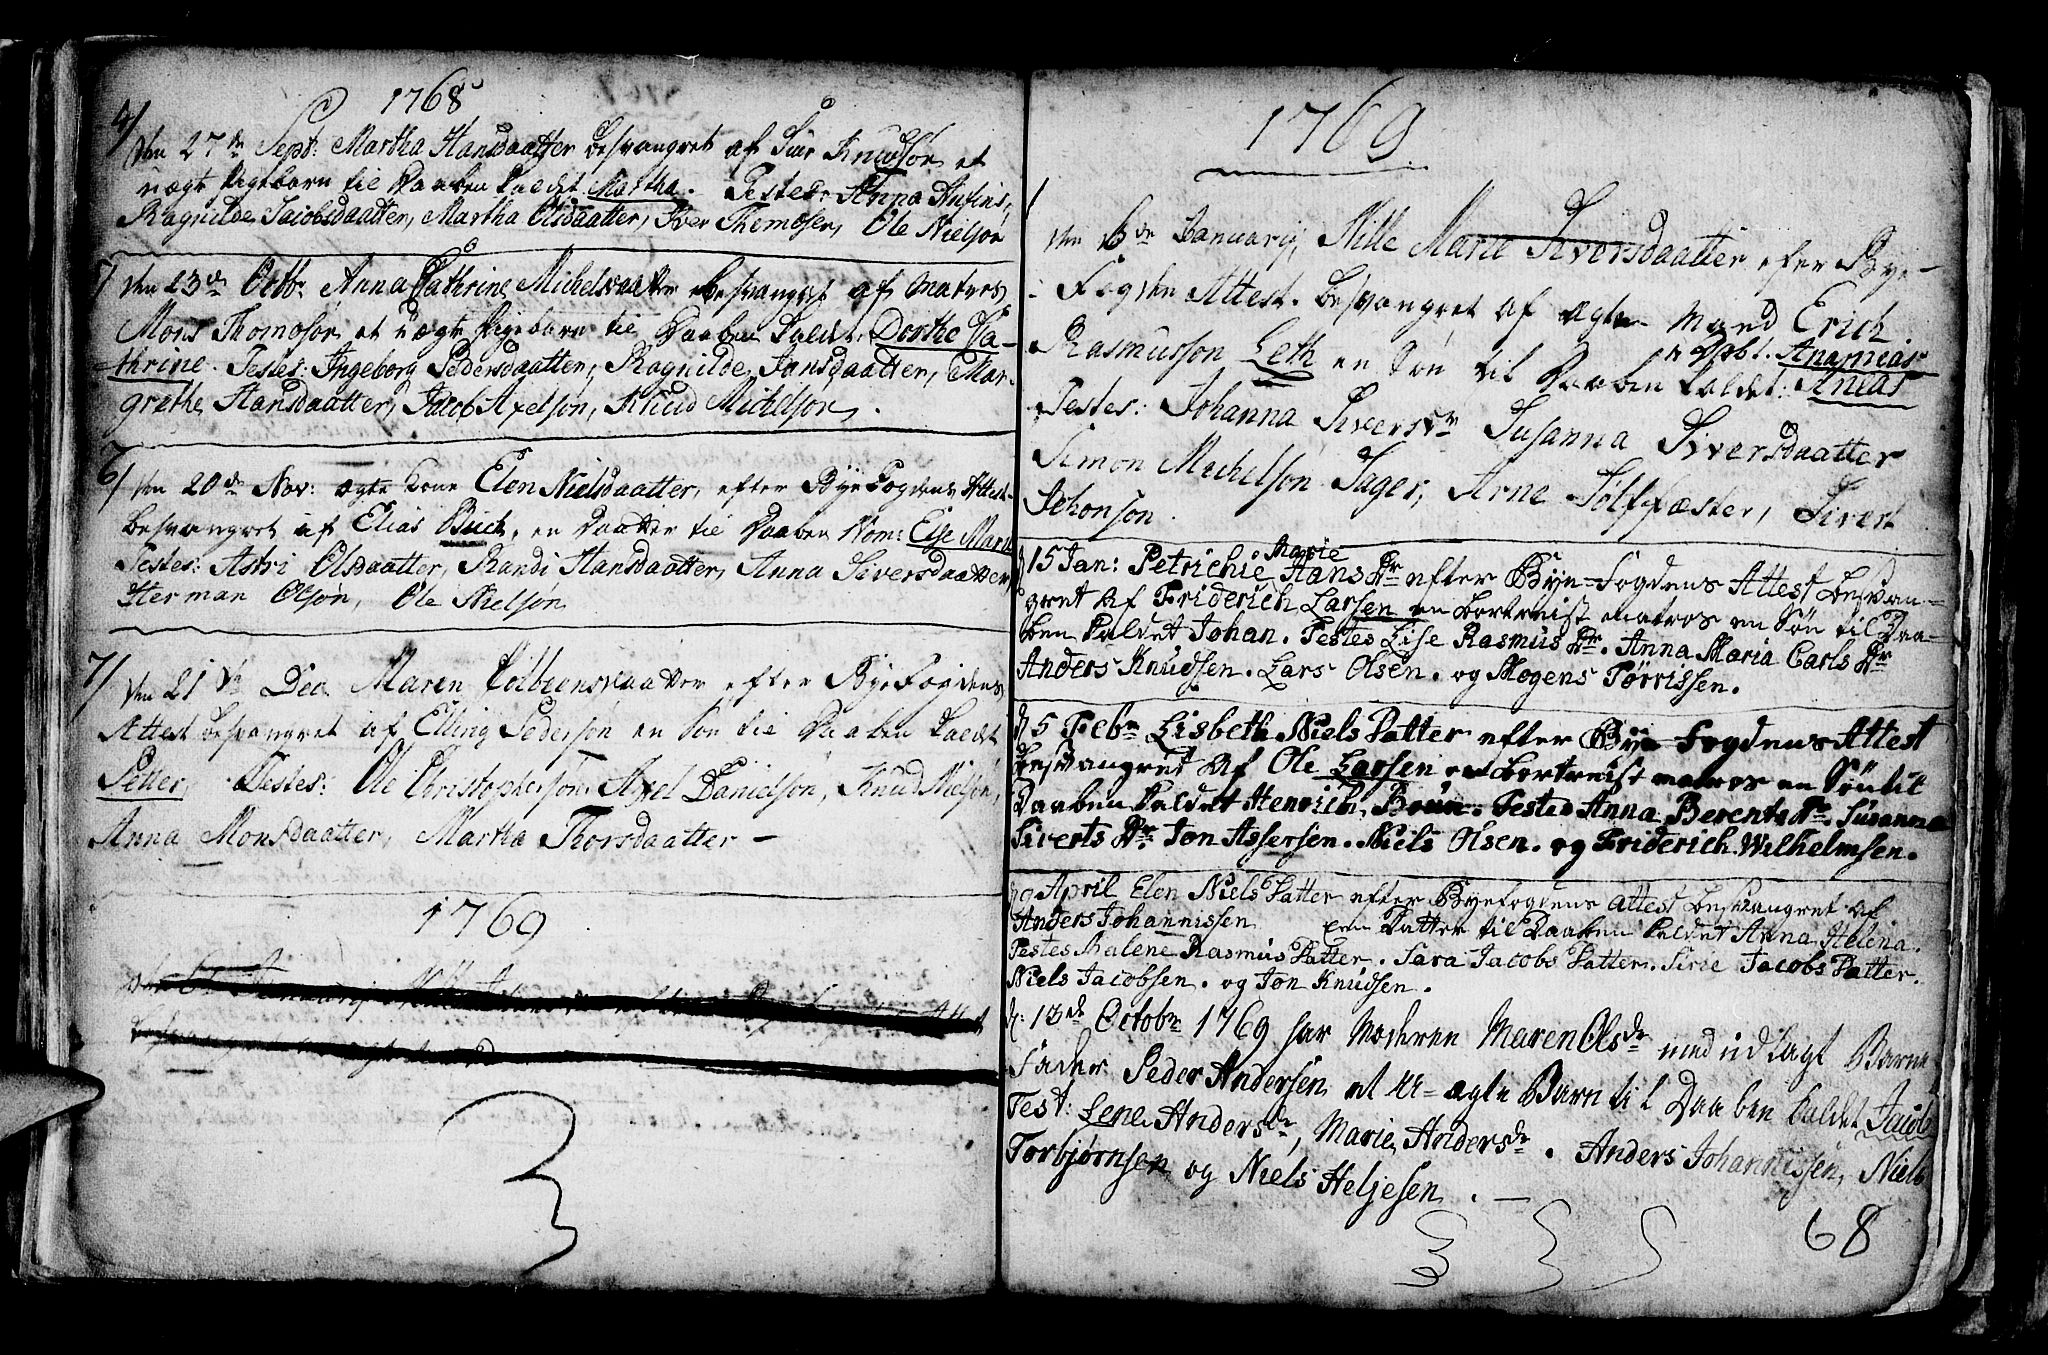 1768
4/
den 27de Sept: Martha Hansdaatter besvangret af Siur Knudsøn et
uægte Pigebarn til Daaben kaldet Martha. Testes: Anna Anfins,
Ragnilde Jacobsdaatter, Martha Olsdaatter, Iver Themosen, Ole Nielsøn
5
den 23de Octbr Anna Cathrine Michelsdaatter besvangret af Matros
Mons Thomosøn et uægte Pigebarn til Daaben kaldet Dorthe Ca-
thrine. Testes: Ingeborg Pedersdaatter, Ragnilde Jonsdaatter, Mar-
grethe Hansdaatter, Jacob Axelsøn, Knud Michelsøn.
6/
den 20de Nov: ægte Kone Elen Nielsdaatter, efter Bÿe Fogdens Attest
besvangret af Elias Buch, en Daatter til Daaben Nom: Else Marie
Testes: Astri Olsdaatter, Randi Hansdaatter, Anna Siversdaatter
Herman Olson, Ole Nielsøn
7/
den 21de Dec Maren Colbiensdaatter efter Bÿe Fogdens
Attest besvangret af Elling Pedersøn en Søn til Daaben kaldet
Petter. Testes: Ole Christophersøn, Axel Danielsøn, Knud Nielsøn,
Anna Monsdaatter, Martha Thorsdaatter —
1769
den Januarij Nille
1769
1
den 6de Januarij, Nille Marie Siversdaatter efter Bÿe-
Fogden Attest. besvangret af ægte Mand Erich
Rasmussøn Leth en Søn til Daaben kaldet: Ananias
Anias
Testes: Johanna Sivers Dr Susanna Siversdaatter
Simon Michelsøn Sager, Arne Sølffæster, Sivert
Schonson.
d 15 Jan: Petrichie Marie Hans Dr efter Bÿe-Fogdens Attest besvan-
gret af Friderich Larsen en bortreist matros en Søn til Daa-
ben kaldet Johan. Testes Lise Rasmus Dr. Anna Maria Carls Dr
Anders Knudsen. Lars Olsen. og Mogens Tørrissen.
d 5 Febr Lisbeth Niels Datter efter Bÿe Fogdens Attest
besvangret af Ole Larsen en bortreist matros en Søn til
Daaben kaldet Henrich Brun. Testes Anna Berents Dr. Susanna
Siverts Dr Jon Assersen. Niels Olsen. og Friderich Wilhelmsen.
d 9 April Elen Niels Datter efter Byefogdens Attest besvangret af
Anders Johannissen een Datter til Daaben kaldet Anna Helena.
Testes Malene Rasmus Datter. Sara Jacobs Datter. Sirie Jacobs Datter.
Niels Jacobsen. og Jon Knudsen.
d: 13de Octobr 1769 har Moderen Maren Olsdr med udlagt Barne
Fader Peder Andersen et u-ægte Barn til Daaben kaldet Jacob
Test: Lene Andersdr, Marie Andersdr. Anders Johannissen, Niels
Torbjørnsen og Niels Heljesen. —
68